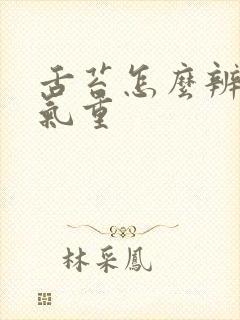 舌苔怎麼辨
氣重
林采鳳